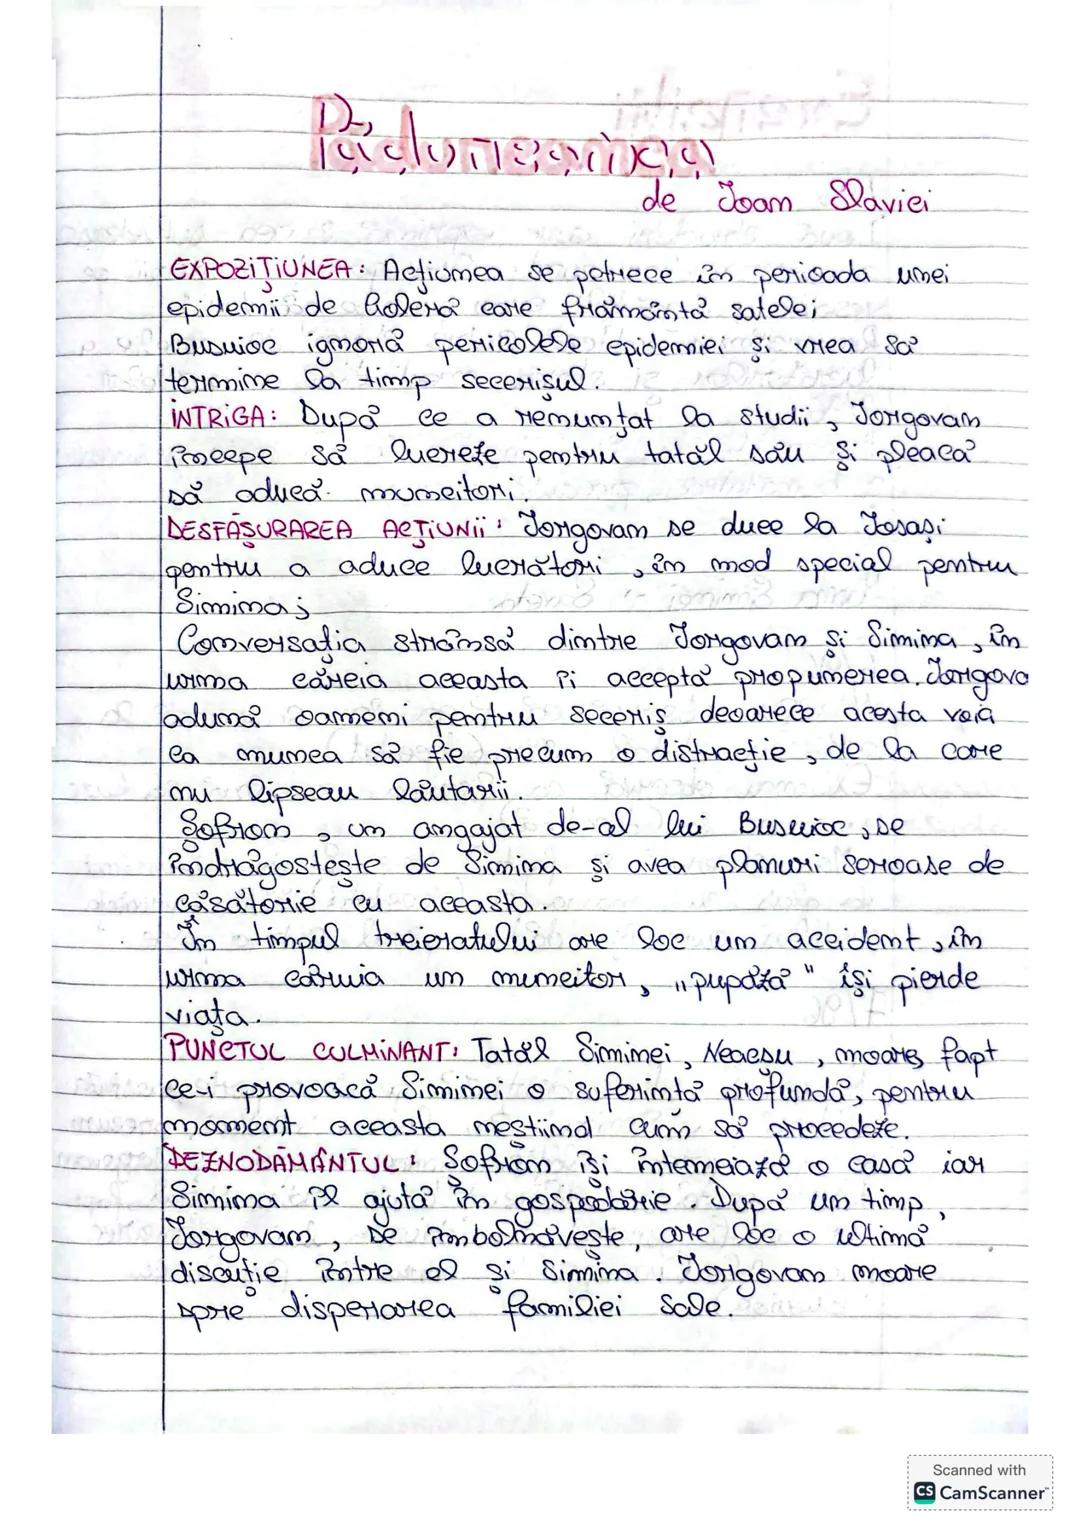 Pădureanca
de Ioan Slavici
EXPOZIȚIUNEA: Acțiunea se petrece în perioada unei
epidemii de holeră care frământă satele;
Busuioc ignoră pericolele epidemiei și vrea să
termine la timp secerișul.
INTRIGA: După ce a renunțat la studii, Iorgovan
începe să lucreze pentru tatăl său și pleacă
să aducă muncitori.
DESFĂȘURAREA ACȚIUNII: Iorgovan se duce la Iosași
pentru a aduce lucrători, în mod special pentru
Simina;
Conversația strânsă dintre Iorgovan și Simina, în
urma căreia aceasta îi acceptă propunerea. Iorgova
adună oameni pentru seceriș deoarece acesta voia
ca munca să fie precum o distracție, de la care
nu lipseau lăutarii.
Șofron, un angajat de-al lui Busuioc, se
îndrăgostește de Simina și avea planuri seroase de
căsătorie cu aceasta.
În timpul treieratului are loc un accident, în
urma căruia un muncitor, „pupăză" își pierde
viața.
PUNCTUL CULMINANT: Tatăl Siminei, Neacșu, moare, fapt
ce-i provoacă Siminei o suferință profundă, pentru
moment aceasta neștiind cum să procedeze.
DEZNODĂMÂNTUL: Șofron își întemeiază o casă iar
Simina îl ajută în gospodărie. După un timp,
Iorgovan, se îmbolnăvește, are loc o ultimă
discuție între el și Simina. Iorgovan moare
spre disperarea familiei sale.
Scanned with
CS CamScanner